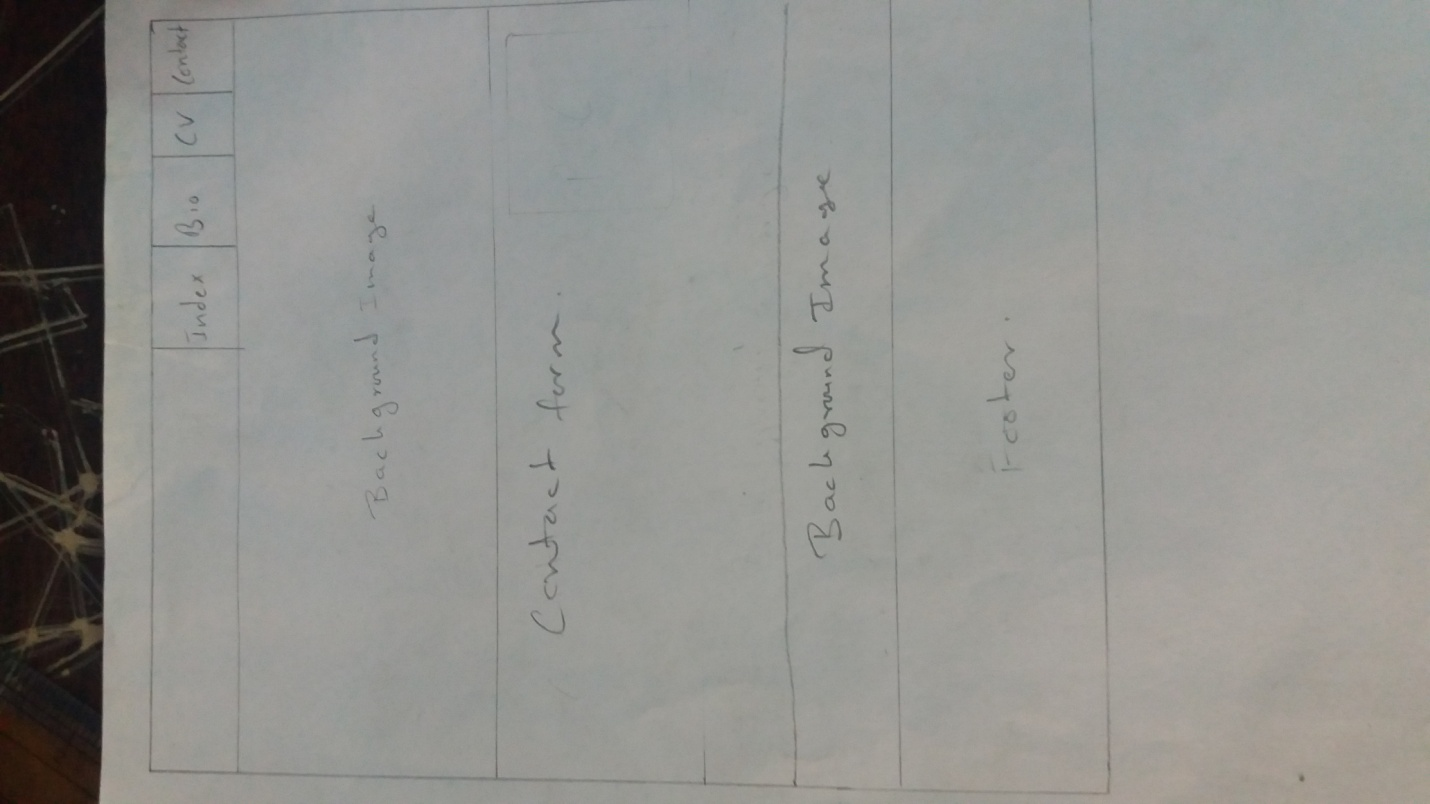 Index Bio CV Contact
Background Image
Contact form.
Background Image
Footer.